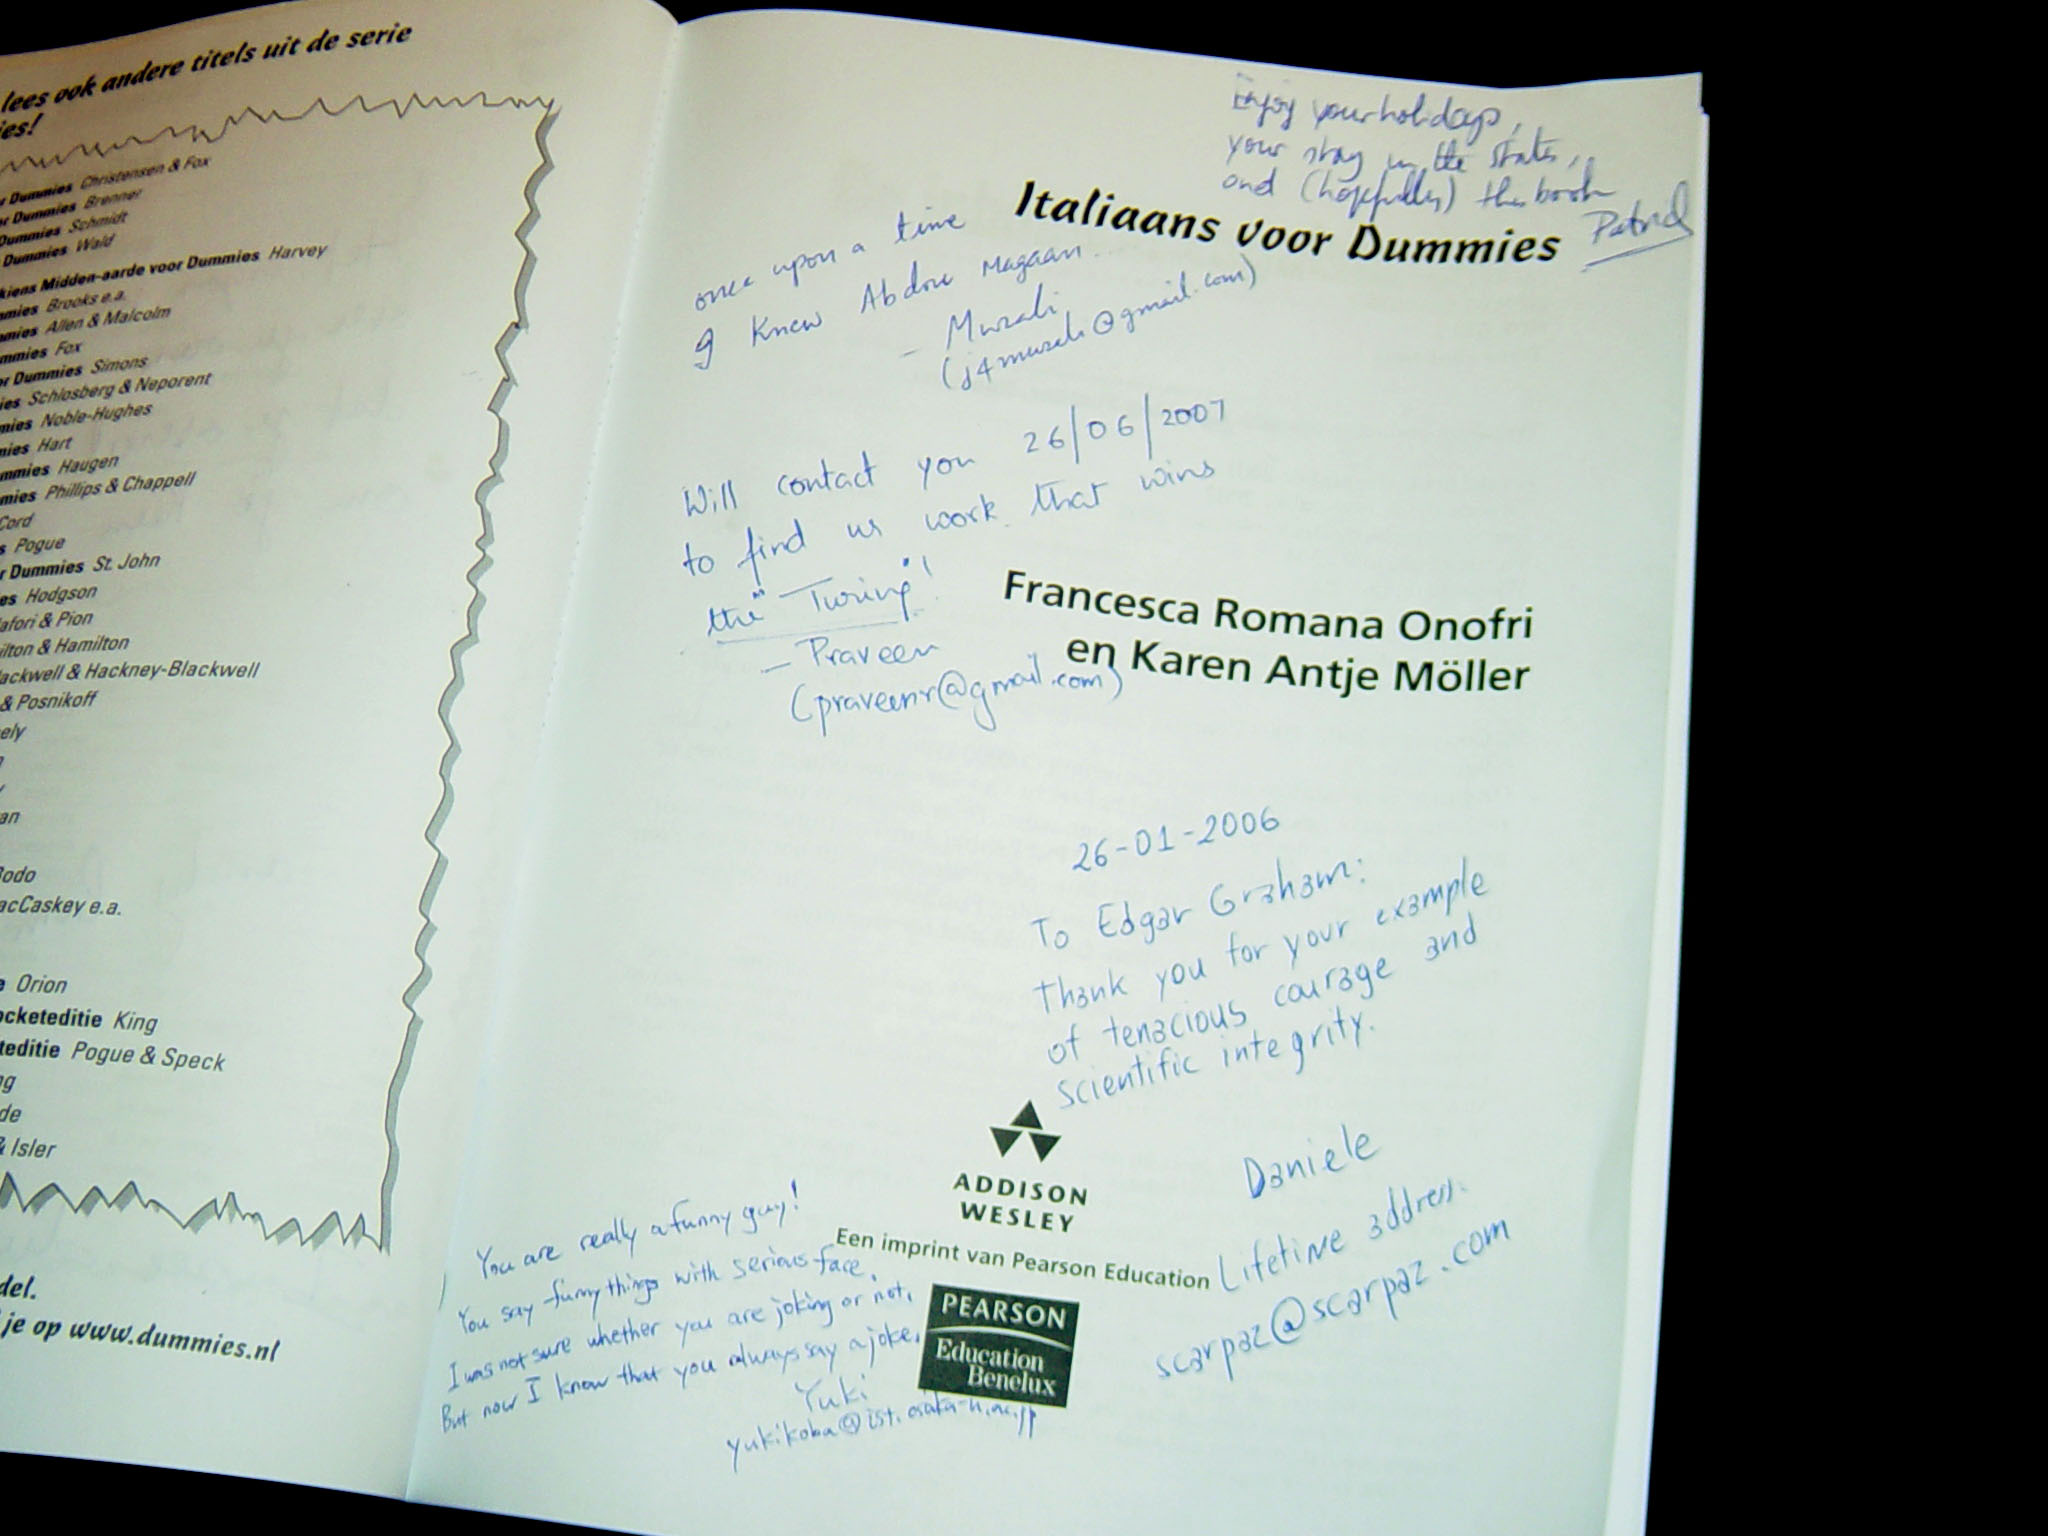 lees ook andere titels uit de serie
ies!
r Dummies Christensen & Fox
or Dummies Brenner
Dummies Schmidt
Dummies Wald
kiens Midden-aarde voor Dummies Harvey
mmies Brooks e.a.
mmies Allen & Malcolm
mmies Fox
or Dummies Simons
ies Schlosberg & Neporent
mies Noble-Hughes
mies Hart
mmies Haugen
mies Phillips & Chappell
Cord
s Pogue
r Dummies St. John
es Hodgson
afori & Pion
ilton & Hamilton
lackwell & Hackney-Blackwell
& Posnikoff
ely
an
Bodo
acCaskey e.a.
e Orion
ocketeditie King
teditie Pogue & Speck
ng
de
& Isler
del.
je op www.dummies.nl
Enjoy your holidays,
your stay in the States,
and (hopefully) this book
Italiaans voor Dummies
once upon a time
I knew Abdou Magaan...
- Murali
(j4murali@gmail.com)
Will contact you 26/06/2007
to find us work that wins
the "Turing"!
- Praveen
(praveenr@gmail.com)
Francesca Romana Onofri
en Karen Antje Möller
26-01-2006
To Edgar Graham:
Thank you for your example
of tenacious courage and
scientific integrity.
Daniele
Lifetime address:
scarpaz@scarpaz.com
ADDISON
WESLEY
Een imprint van Pearson Education
PEARSON
Education
Benelux
You are really a funny guy!
You say funny things with serious face.
I was not sure whether you are joking or not.
But now I know that you always say a joke.
Yuki
yukikoba@ist.osaka-u.ac.jp